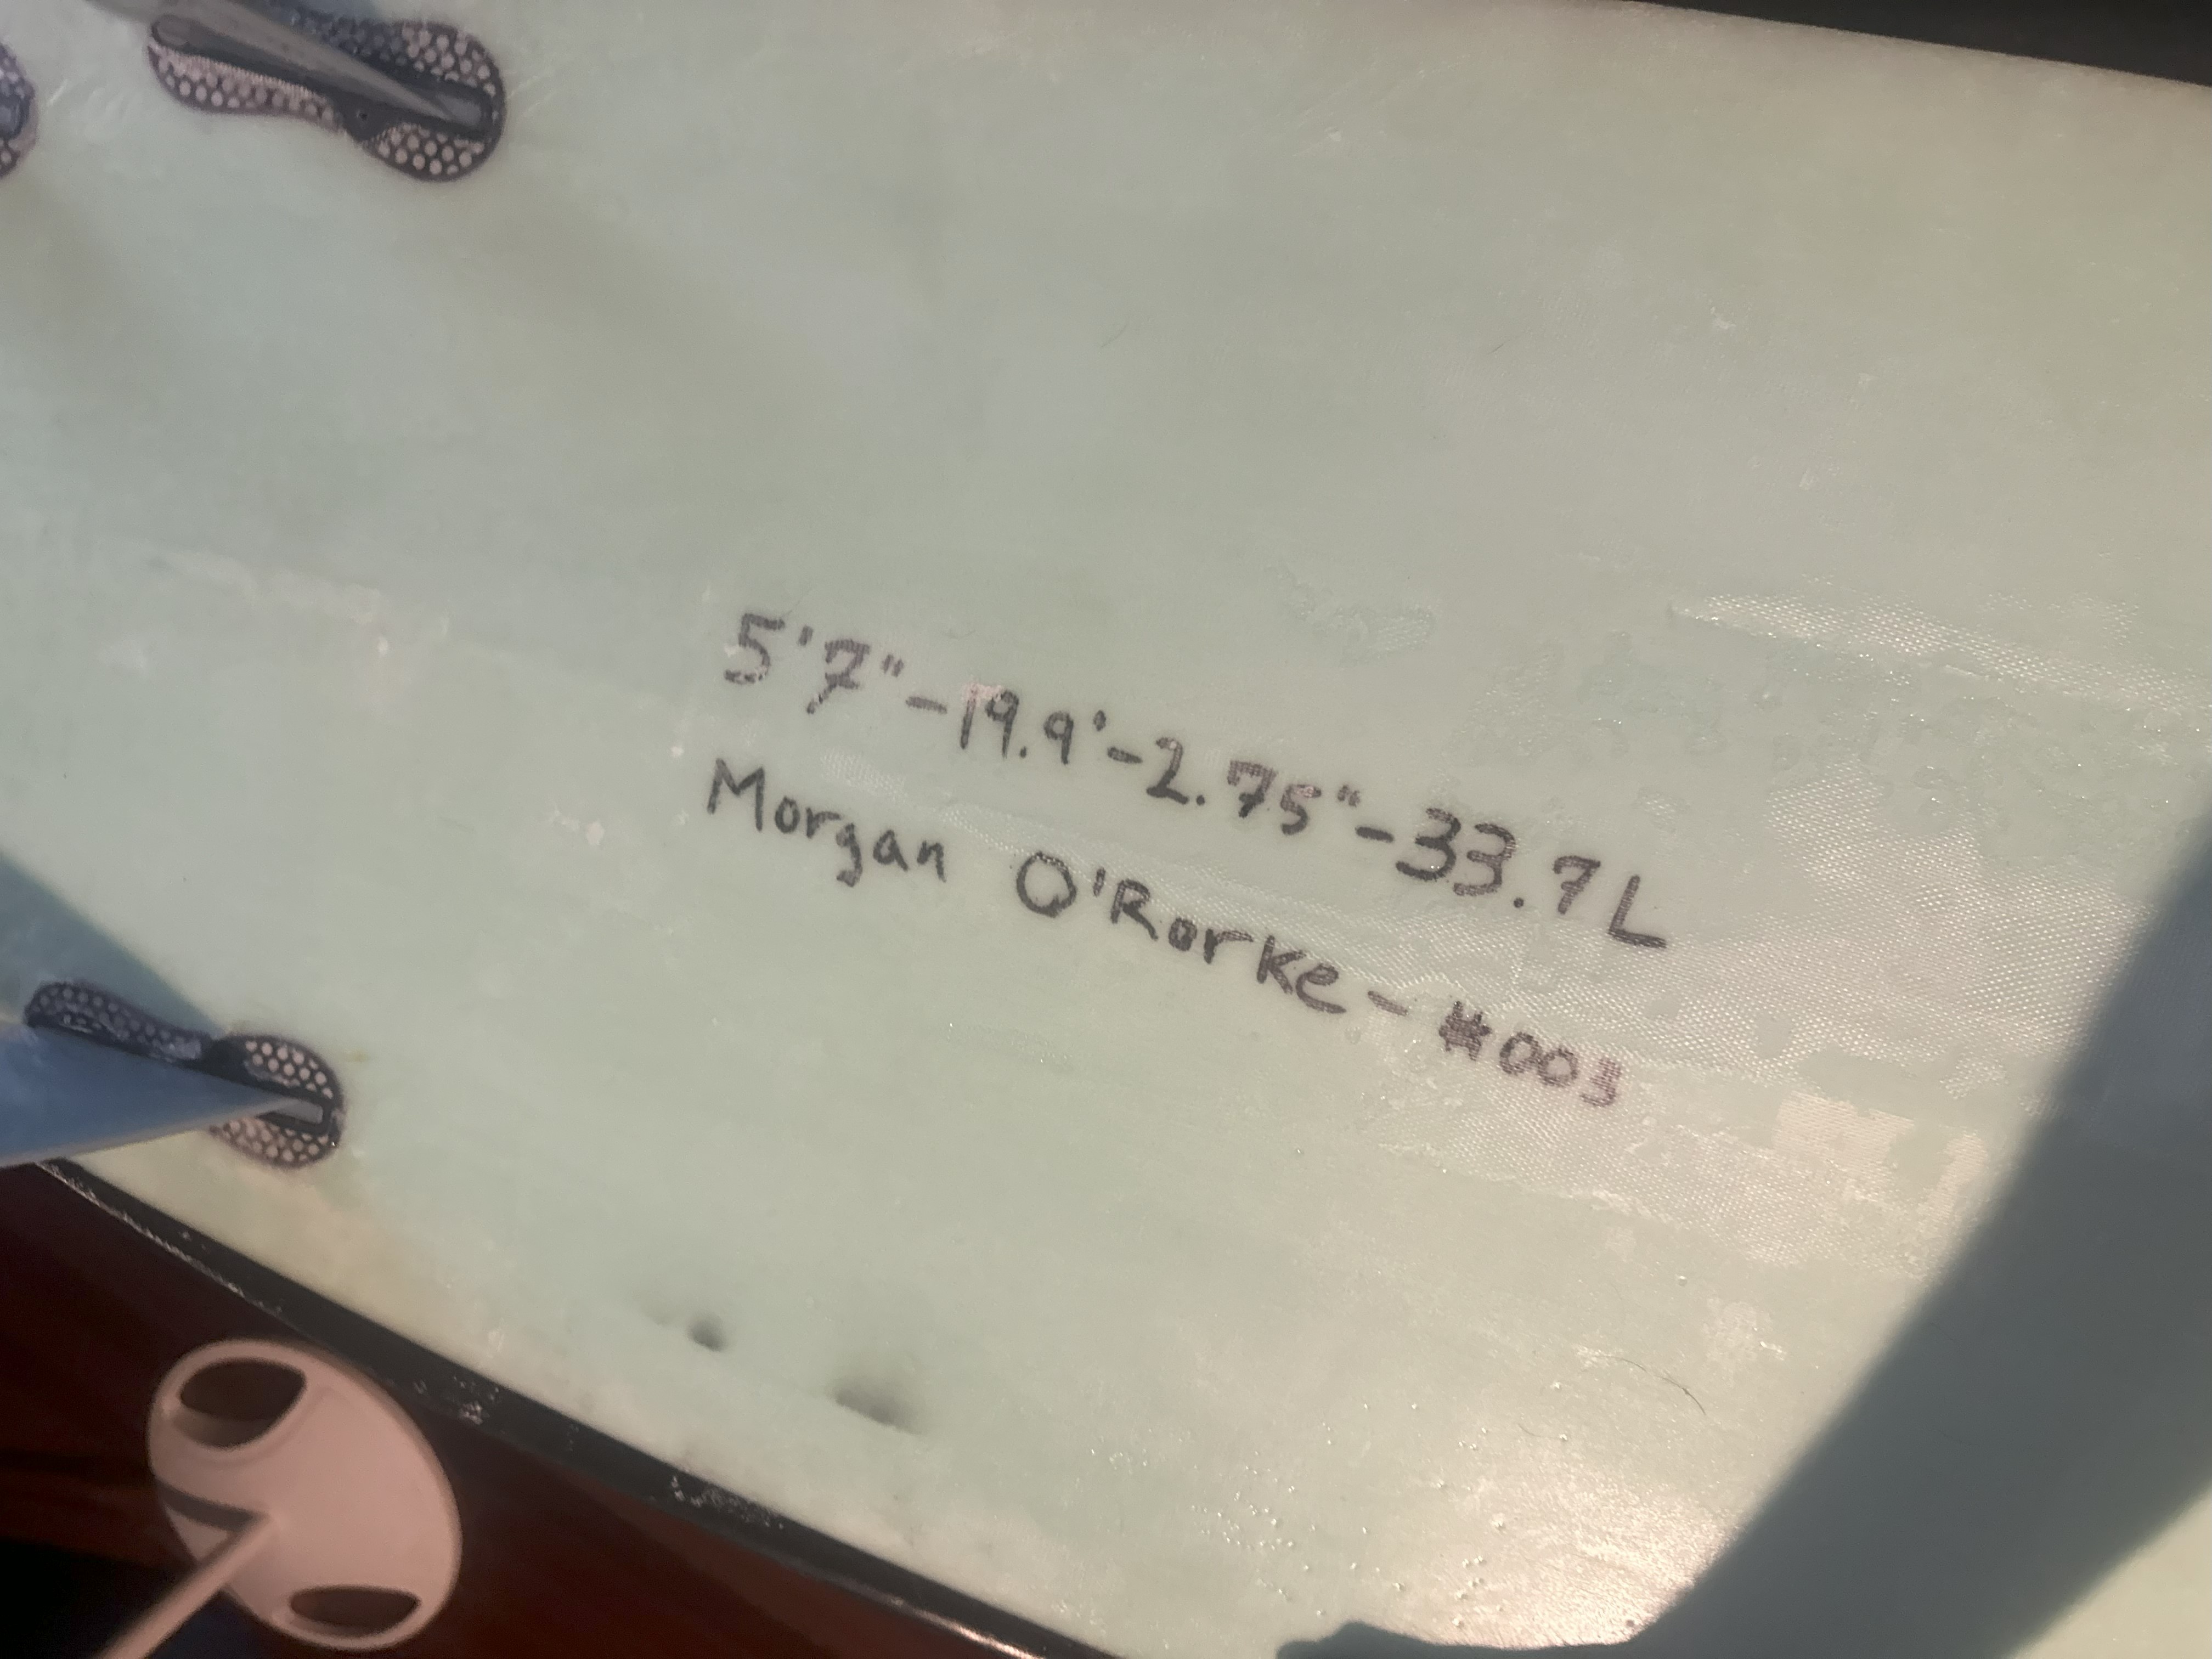 5'7"-19.9'-2.75"-33.7L
Morgan O'Rorke - #003